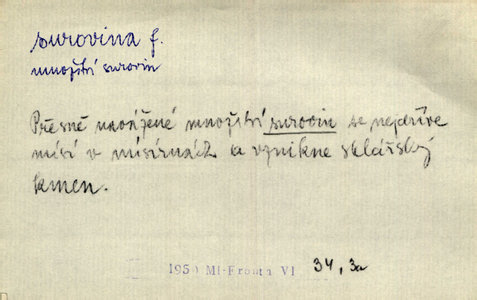 surovina f.
množství surovin
Přesně navážené množství surovin se nejdříve
mísí v mísírnách a vznikne sklářský
kmen.
1950 Ml-Fronta VI 34, 3a